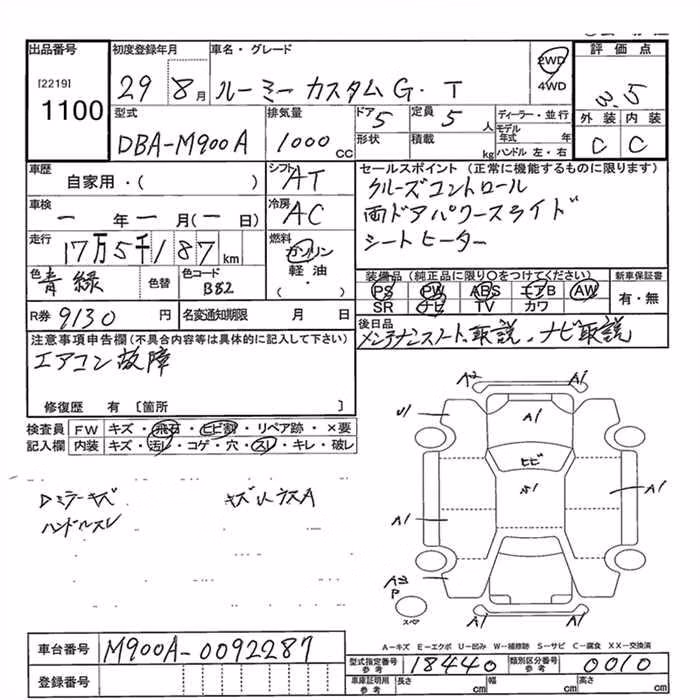 出品番号 初度登録年月 車名・グレード 評価点
[2219] 1100
29 8月 ルーミー カスタムG・T 2WD 4WD 3.5
型式 DBA-M900A
排気量 1000 cc
ドア 5 定員 5 人
形状 積載 kg
ディーラー・並行
モデル年式 年
ハンドル 左・右
外装 内装
C C
車歴 自家用・( )
シフト AT
セールスポイント (正常に機能するものに限ります)
クルーズコントロール
両ドアパワースライド
シートヒーター
車検 一年一月(一日)
冷房 AC
走行 17万5千187 km
燃料 ガソリン 軽油 ( ・ )
色 青緑 色替 色コード B82
装備品(純正品に限り○をつけてください) 新車保証書
PS PW ABS エアB AW 有・無
SR ナビ TV カワ
R券 9130 円 名変通知期限 月 日
後日品
メンテナンスノート、取説、ナビ取説
注意事項申告欄(不具合内容等は具体的に記入して下さい)
エアコン故障
修復歴 有 [箇所 ]
検査員 FW キズ・飛石・ヒビ割・リペア跡・×要
記入欄 内装 キズ・汚レ・コゲ・穴・スレ・キレ・破レ
Dミラーキズ
ハンドルスレ
A2 A1
U1 A1
ヒビ
A1 A1
A3
P
スペア
A1 A1
A-キズ E-エクボ U-凹み W-補修跡 S-サビ C-腐食 XX-交換済
車台番号 M900A-0092287
型式指定番号 参考 18440 類別区分番号 参考 0010
登録番号
車庫証明用 参考 長さ cm 幅 cm 高さ cm